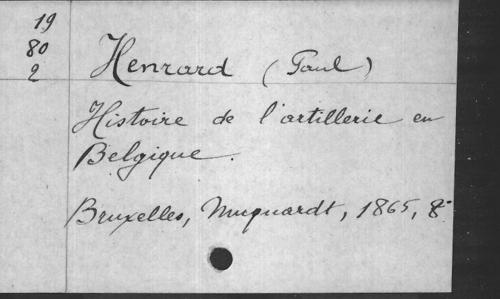 19
80
2
Henrard (Paul)
Histoire de l'artillerie en
Belgique.
Bruxelles, Muquardt, 1865, 8°